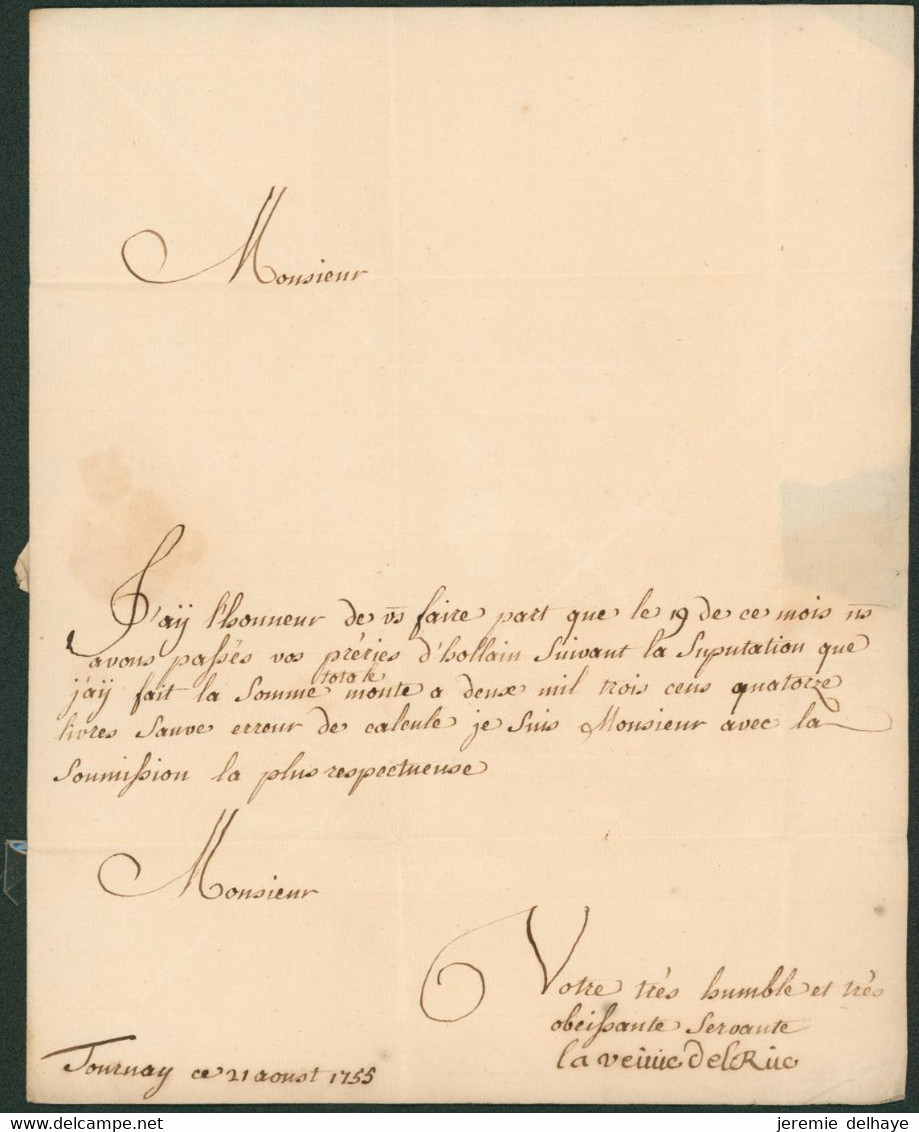 Monsieur
J'aÿ l'honneur de vs̄ faire part que le 19 de ce mois ns̄
avons passés vos préries d'hollain suivant la suputation que
totale
j'aÿ fait la somme monte a deux mil trois cens quatorze
livres sauve erreur de calcule je suis Monsieur avec la
soumission la plus respectueuse
Monsieur
Votre trés humble et trés
obeissante servante
la veüüe delRüe
Tournay ce 21 aoust 1755
jeremie delhaye